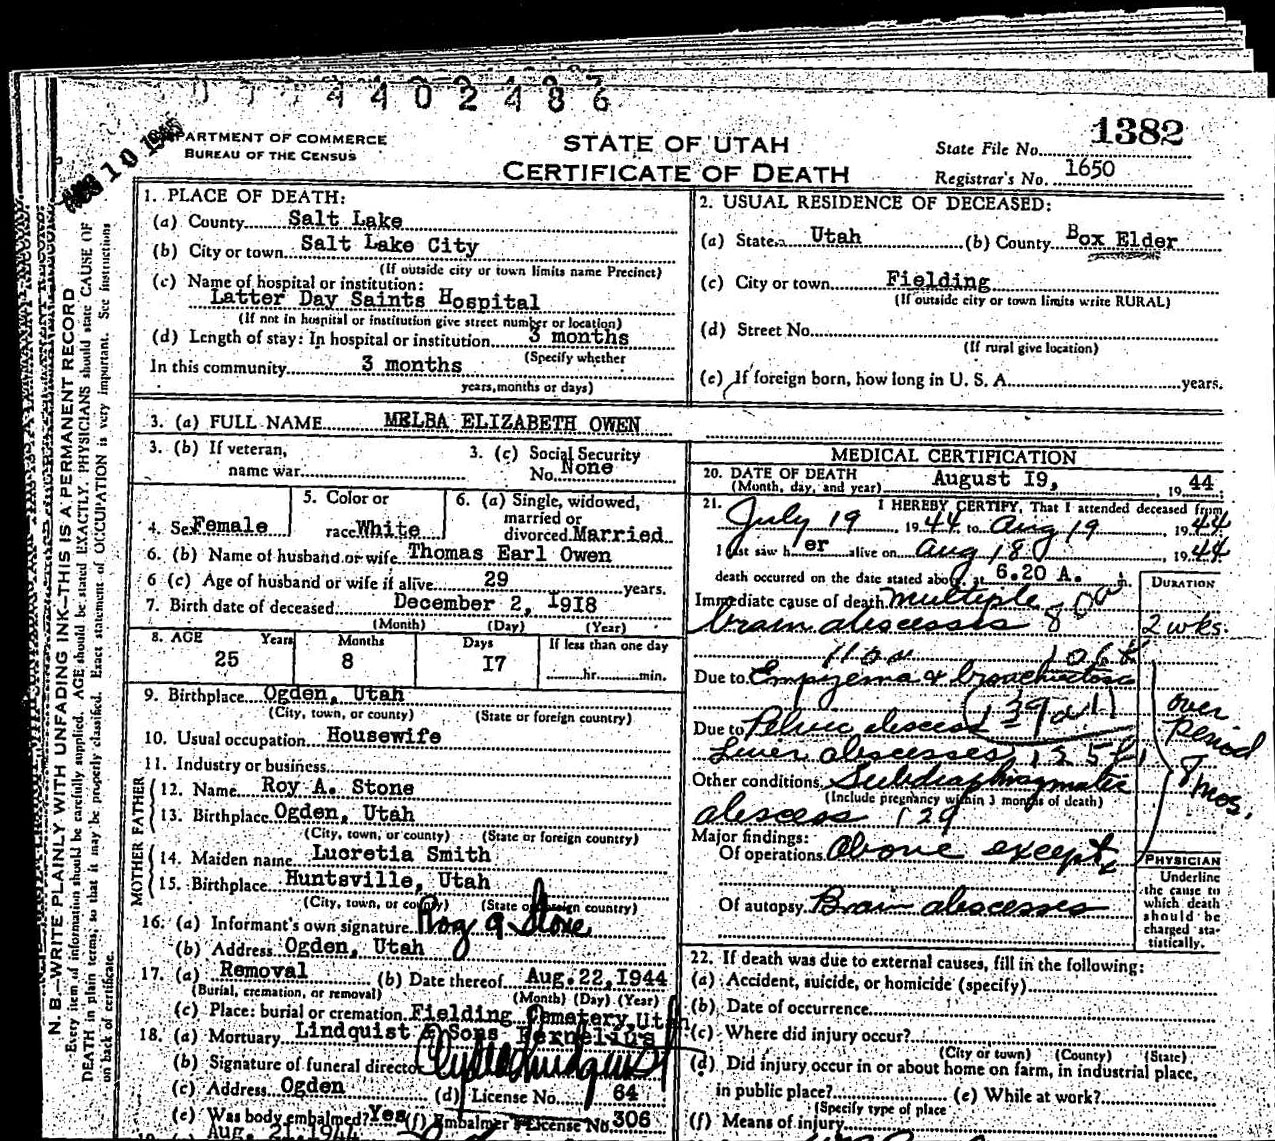 4 4 0 2 4 8 6
DEPARTMENT OF COMMERCE
BUREAU OF THE CENSUS
STATE OF UTAH
CERTIFICATE OF DEATH
State File No. 1382
Registrar's No. 1650
N. B.—WRITE PLAINLY WITH UNFADING INK—THIS IS A PERMANENT RECORD
Every item of information should be carefully supplied. AGE should be stated EXACTLY. PHYSICIANS should state CAUSE OF
DEATH in plain terms, so that it may be properly classified. Exact statement of OCCUPATION is very important. See instructions
on back of certificate.
1. PLACE OF DEATH:
(a) County Salt Lake
(b) City or town Salt Lake City
(If outside city or town limits name Precinct)
(c) Name of hospital or institution:
Latter Day Saints Hospital
(If not in hospital or institution give street number or location)
(d) Length of stay: In hospital or institution 3 months
(Specify whether
In this community 3 months
years, months or days)
2. USUAL RESIDENCE OF DECEASED:
(a) State Utah (b) County Box Elder
(c) City or town Fielding
(If outside city or town limits write RURAL)
(d) Street No.
(If rural give location)
(e) If foreign born, how long in U. S. A. years.
3. (a) FULL NAME MELBA ELIZABETH OWEN
3. (b) If veteran,
name war
3. (c) Social Security
No. None
4. Sex Female
5. Color or
race White
6. (a) Single, widowed,
married or
divorced Married
6. (b) Name of husband or wife Thomas Earl Owen
6 (c) Age of husband or wife if alive 29 years.
7. Birth date of deceased December 2, 1918
(Month) (Day) (Year)
8. AGE Years Months Days If less than one day
25 8 17 hr. min.
9. Birthplace Ogden, Utah
(City, town, or county) (State or foreign country)
10. Usual occupation Housewife
11. Industry or business
FATHER
12. Name Roy A. Stone
13. Birthplace Ogden, Utah
(City, town, or county) (State or foreign country)
MOTHER
14. Maiden name Lucretia Smith
15. Birthplace Huntsville, Utah
(City, town, or county) (State or foreign country)
16. (a) Informant's own signature Roy A Stone
(b) Address Ogden, Utah
17. (a) Removal (b) Date thereof Aug. 22, 1944
(Burial, cremation, or removal) (Month) (Day) (Year)
(c) Place: burial or cremation Fielding Cemetery, Utah
18. (a) Mortuary Lindquist & Sons
(b) Signature of funeral director
(c) Address Ogden (d) License No. 64
(e) Was body embalmed? Yes (f) Embalmer's License No. 306
Aug. 21, 1944
MEDICAL CERTIFICATION
20. DATE OF DEATH
(Month, day, and year) August 19, 1944
21. I HEREBY CERTIFY, That I attended deceased from
July 19 1944 to Aug 19, 1944
I last saw her alive on Aug 18 1944
death occurred on the date stated above, at 6.20 A. m.
DURATION
Immediate cause of death multiple
brain abscesses 2 wks.
Due to Empyema & bronchiectasis
Due to Pelvic abscess
Liver abscesses
over
period
8 mos.
Other conditions Subdiaphragmatic
(Include pregnancy within 3 months of death)
abscess 129
Major findings:
Of operations Above except
Of autopsy Brain abscesses
PHYSICIAN
Underline
the cause to
which death
should be
charged sta-
tistically.
22. If death was due to external causes, fill in the following:
(a) Accident, suicide, or homicide (specify)
(b) Date of occurrence
(c) Where did injury occur?
(City or town) (County) (State)
(d) Did injury occur in or about home on farm, in industrial place,
in public place? (e) While at work?
(Specify type of place
(f) Means of injury